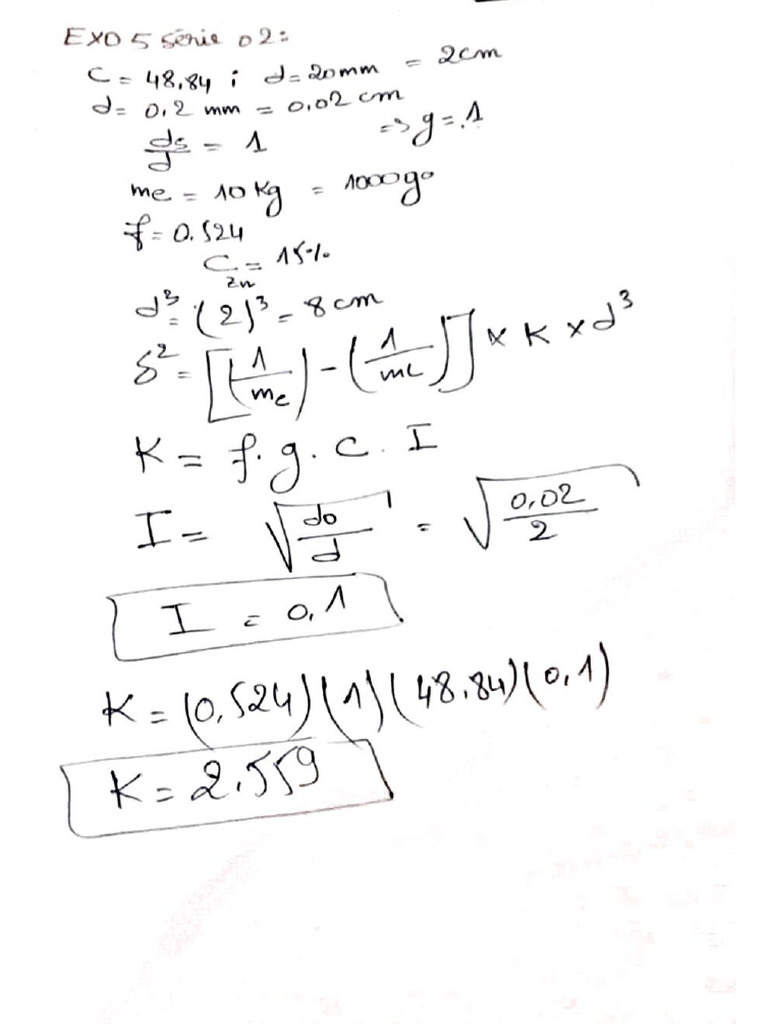 EXO 5 série 02:
C = 48,84 ; d = 20mm = 2cm
d = 0,2 mm = 0,02 cm
ds/d = 1 => g = 1
me = 10 Kg = 1000g
f = 0.524
C = 15%
Zn
d³ = (2)³ = 8 cm
δ² = [(1/me) - (1/mL)] × K × d³
K = f. g. c. I
I = √(do/d) = √(0,02/2)
I = 0,1
K = (0,524)(1)(48,84)(0,1)
K = 2.559